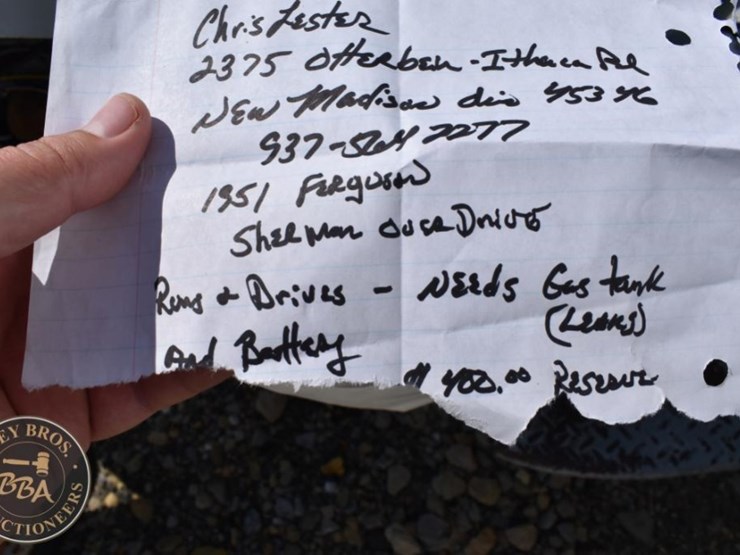 Chris Lester
2375 Otterbein-Ithaca Rd
New Madison Ohio 45346
937-564 7277
1951 Ferguson
Sherman over Drive
Runs & Drives - Needs Gas tank
(Leaks)
And Battery
$ 400.00 Reserve
EY BROS.
BBA
CTIONEERS